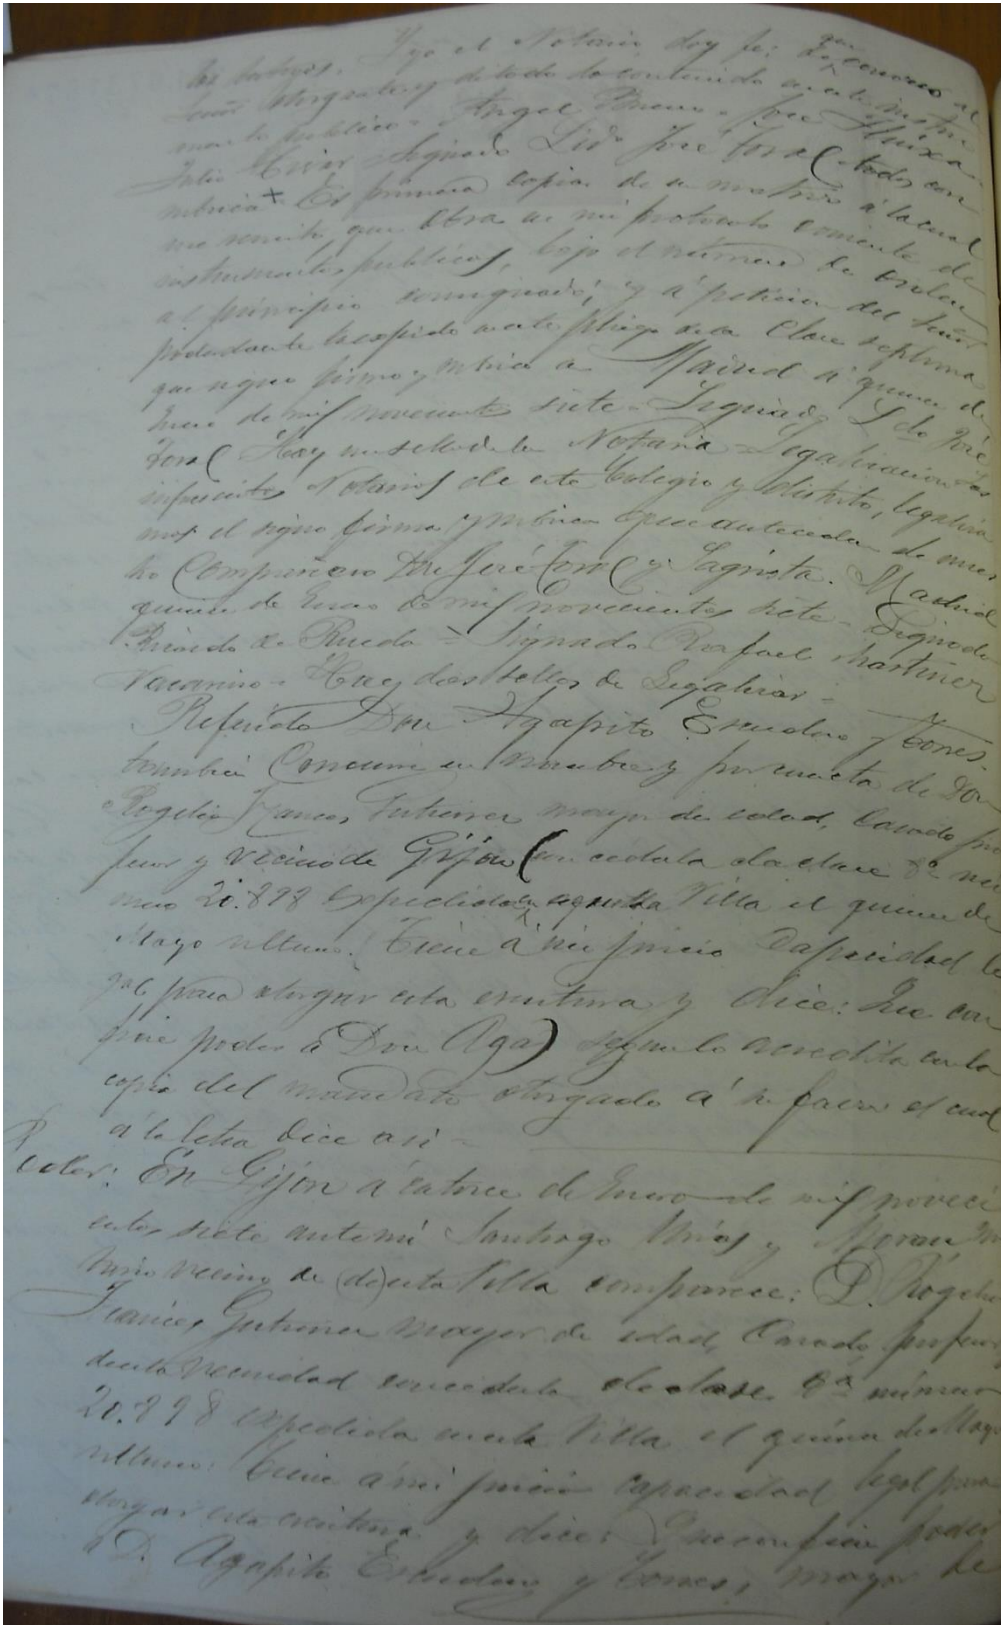 los testigos. Y yo el Notario doy fe: que de conocer al
señor otorgante y de todo lo contenido en este instru
mento publico = Angel Bueno = Jose Fluixa =
Julio Signado Ldo Jose Toral (todos con
rubrica + Es primera copia de su matriz á la cual
me remito, que obra en mi protocolo corriente de
instrumentos publicos, bajo el número de orden
al principio consignado; y á peticion del Señor
poderdante la expido en este pliego de la Clase septima
que signo firmo y rubrico en Madrid á quince de
Enero de mil novecientos siete = Signado Ldo José
Toral Hay un sello de la Notaria = Legalizacion Los
infrascritos Notarios de este Colegio y distrito, legaliza
mos el signo firma y rubrica que anteceden de nues
tro Compañero Don José Toral y Sagrista. Madrid
quince de Enero de mil novecientos siete = Signado
Ricardo de Rueda = Signado Rafael Martinez
= Hay dos sellos de Legalizar =
Referido Don Agapito Escudero y Torres.
tambien Concurre en nombre y por cuenta de Don
Rogelio Frances Gutierrez mayor de edad, Casado pro
fesor y vecino de Gijon (con cedula de clase 8ª nú
mero 20.898 expedida en aquella Villa el quince de
Mayo ultimo. Tiene á mi juicio Capacidad le
gal para otorgar esta escritura y dice: Que con
fiere poder á Don Aga) segun lo acredita con la
copia del mandato otorgado á su favor el cual
á la letra dice asi =
Poder: En Gijón á catorce de Enero de mil noveci
entos siete ante mi Santiago Urias y Moran No
tario vecino de (de) esta Villa comparece: D. Rogelio
Frances Gutierrez mayor de edad, Casado, profesor,
de esta vecindad con cedula de clase 8ª número
20.898 expedida en esta Villa el quince de Mayo
ultimo: Tiene á mi juicio capacidad legal para
otorgar esta escritura y dice: Que confiere poder
á D. Agapito Escudero y Torres, mayor de